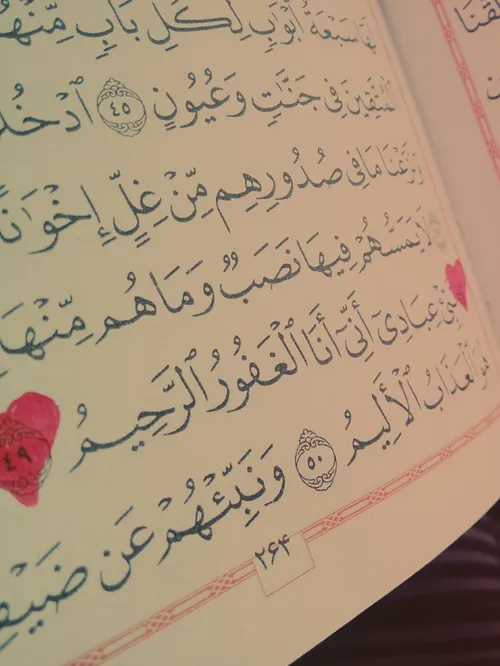 سَبْعَةُ أَبْوَٰبٍ لِّكُلِّ بَابٍ
ٱلْمُتَّقِينَ فِى جَنَّٰتٍ وَعُيُونٍ ٤٥
وَنَزَعْنَا مَا فِى صُدُورِهِم مِّنْ غِلٍّ إِخْوَٰنًا
لَا يَمَسُّهُمْ فِيهَا نَصَبٌ وَمَا هُم مِّنْهَا
عِبَادِىٓ أَنِّىٓ أَنَا ٱلْغَفُورُ ٱلرَّحِيمُ ٤٩
ٱلْعَذَابُ ٱلْأَلِيمُ ٥٠ وَنَبِّئْهُمْ عَن ضَيْفِ
۲۶۴